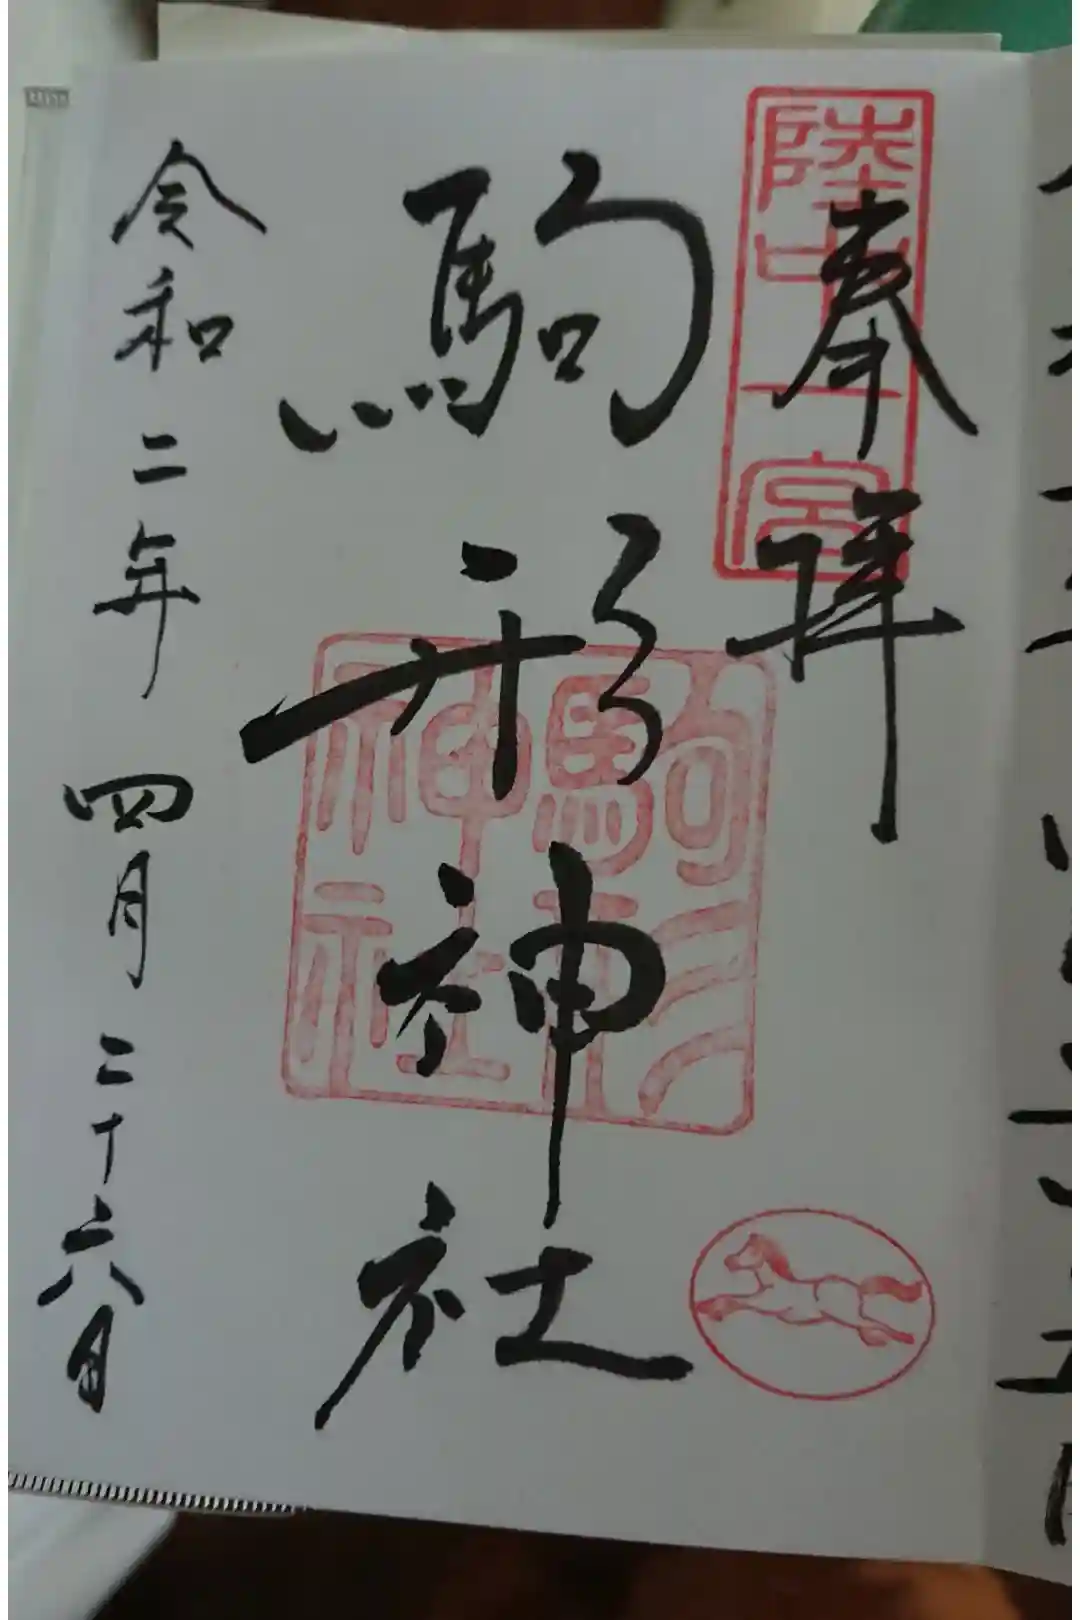 奉拝
陸中一宮
駒形神社
駒形神社
令和二年四月二十六日